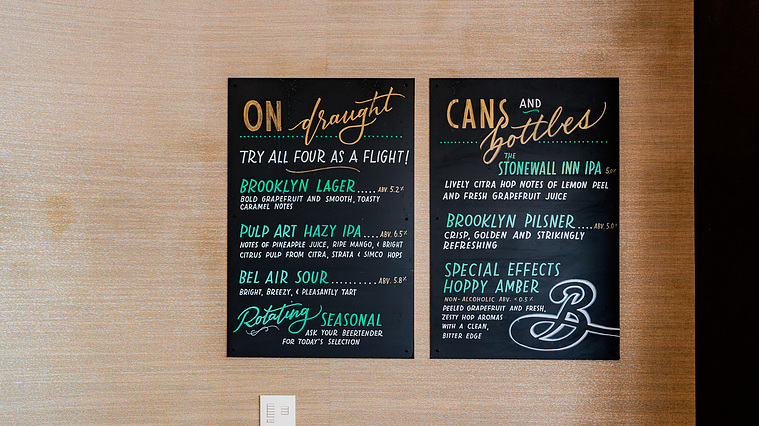 ON draught
TRY ALL FOUR AS A FLIGHT!
BROOKLYN LAGER.....ABV. 5.2%
BOLD GRAPEFRUIT AND SMOOTH, TOASTY
CARAMEL NOTES
PULP ART HAZY IPA....ABV. 6.5%
NOTES OF PINEAPPLE JUICE, RIPE MANGO, & BRIGHT
CITRUS PULP FROM CITRA, STRATA & SIMCO HOPS
BEL AIR SOUR...........ABV. 5.8%
BRIGHT, BREEZY, & PLEASANTLY TART
Rotating SEASONAL
ASK YOUR BEERTENDER
FOR TODAY'S SELECTION
CANS AND
bottles
THE
STONEWALL INN IPA 5.0%
LIVELY CITRA HOP NOTES OF LEMON PEEL
AND FRESH GRAPEFRUIT JUICE
BROOKLYN PILSNER....ABV. 5.0%
CRISP, GOLDEN AND STRIKINGLY
REFRESHING
SPECIAL EFFECTS
HOPPY AMBER
NON-ALCOHOLIC ABV. <0.5%
PEELED GRAPEFRUIT AND FRESH,
ZESTY HOP AROMAS
WITH A CLEAN,
BITTER EDGE
B